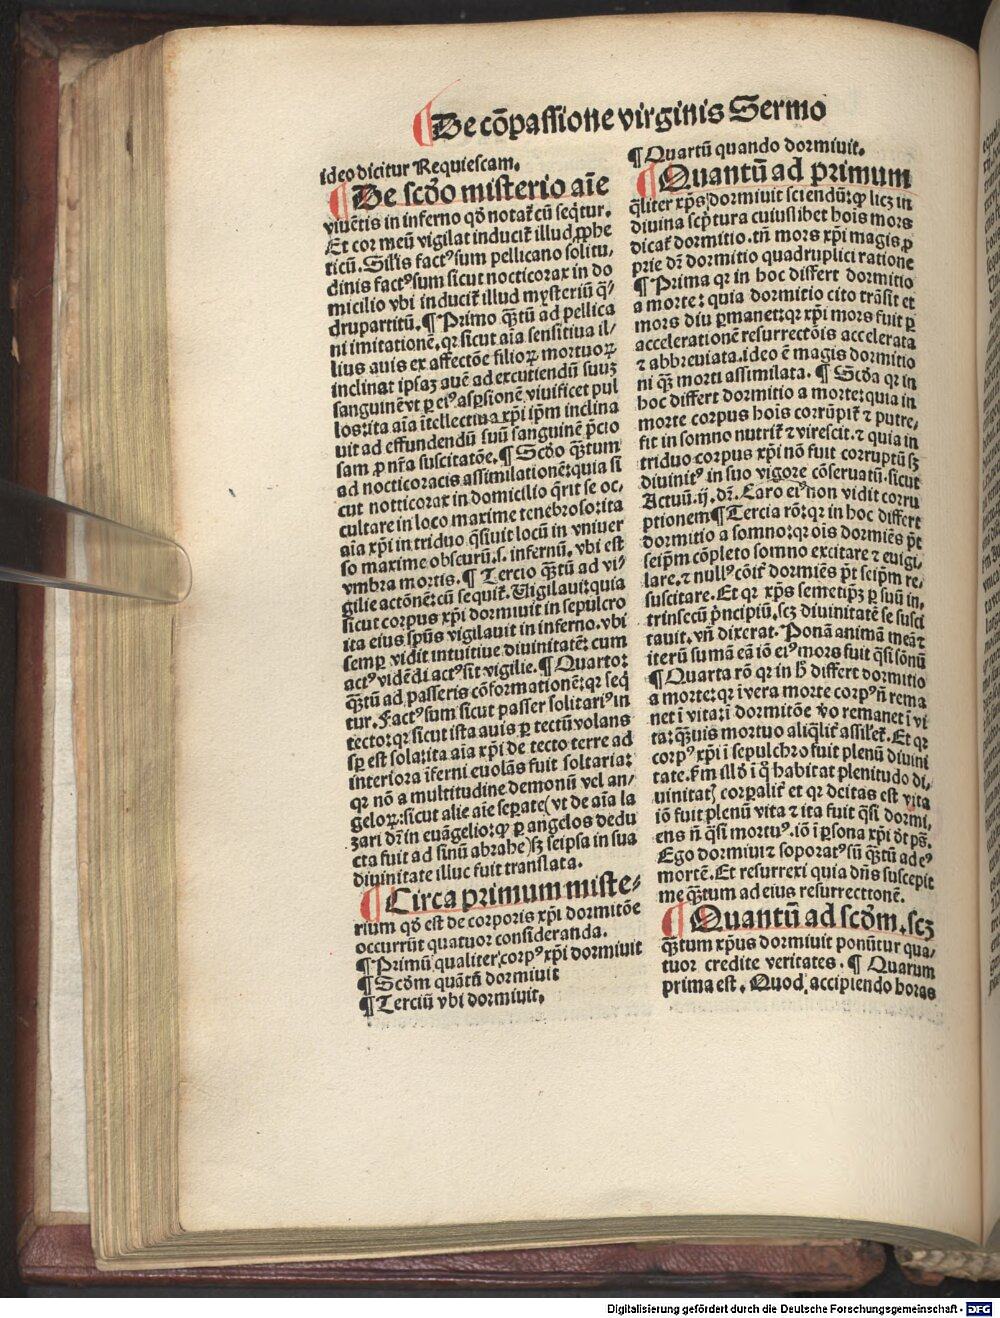 ¶ De cōpassione virginis Sermo
ideo dicitur Requiescam.
¶ De scd̄o misterio aīe
viuētis in inferno qd̄ notat̄ cū seq̄tur.
Et cor meū vigilat inducit̄ illud ꝓphe
ticū. Sil̄is factꝰ sum pellicano solitu⸗
dinis factꝰ sum sicut nocticorax in do
micilio vbi inducit̄ illud mysteriū q̄⸗
drupartitū. ¶ Primo qꝫtū ad pellica
ni imitationē. qꝛ sicut aīa sensitiua il⸗
lius auis ex affectōe filioꝝ mortuoꝝ
inclinat ipsaꝫ auē ad excutiendū suuꝫ
sanguinē vt ꝑ eiꝰ aspsionē viuificet pul
los: ita aīa ītellectiua xp̄i ip̄m inclina
uit ad effundendū suū sanguinē p̄cio
sam ꝓ nr̄a suscitatōe. ¶ Scd̄o qꝫtum
ad nocticoracis assimilationē: quia si
cut notticorax in domicilio q̄rit se oc⸗
cultare in loco maxime tenebroso: ita
aīa xp̄i in triduo q̄siuit locū in vniuer
so maxime obscurū. s. infernū. vbi est
vmbra mortis. ¶ Tercio qꝫtū ad vi⸗
gilie actōnē: cū sequit̄. Uigilaui: quia
sicut corpus xp̄i dormiuit in sepulcro
ita eius sp̄us vigilauit in inferno. vbi
semꝑ vidit intuitiue diuinitatē: cum
actꝰ vidēdi actꝰ sit vigilie. ¶ Quarto:
qꝫtū ad passeris cōformationē: qꝛ seq̄
tur. Factꝰ sum sicut passer solitariꝰ in
tecto: qꝛ sicut ista auis ꝑ tectū volans
sp̄ est sola: ita aīa xp̄i de tecto terre ad
interiora īferni euolās fuit soltaria:
qꝛ nō a multitudine demoniū vel an⸗
geloꝝ: sicut alie aīe sepate (vt de aīa la
zari dr̄ in euāgelio: qꝙ ꝑ angelos dedu
cta fuit ad sinū abrahe) sꝫ seipsa in sua
diuinitate illuc fuit translata.
¶ Circa primum miste⸗
rium qd̄ est de corporis xp̄i dormitōe
occurrūt quatuor consideranda.
¶ Primū qualiter corpꝰ xp̄i dormiuit
¶ Scd̄m quātū dormiuit
¶ Terciū vbi dormiuit.
¶ Quartū quando dormiuit.
¶ Quantū ad primum
q̄liter xp̄s dormiuit sciendū: ꝙ licꝫ in
diuina scp̄tura cuiuslibet hois mors
dicat̄ dormitio. tn̄ mors xp̄i magis ꝓ
prie dr̄ dormitio quadruplici ratione
¶ Prima qꝛ in hoc differt dormitio
a morte: quia dormitio cito trāsit et
mors diu ꝑmanet: qꝛ xp̄i mors fuit ꝑ
accelerationē resurrectōis accelerata
⁊ abbreuiata. ideo ē magis dormitio
ni qꝫ morti assimilata. ¶ Scd̄a qꝛ in
hoc differt dormitio a morte: quia in
morte corpus hois corrūpit̄ ⁊ putre⸗
fit in somno nutrit̄ ⁊ virescit. ⁊ quia in
triduo corpus xp̄i nō fuit corruptū sꝫ
diuinitꝰ in suo vigore cōseruatū. sicut
Actuū. ij. dr̄. Caro eiꝰ non vidit corru
ptionem ¶ Tercia rō: qꝛ in hoc differt
dormitio a somno: qꝛ ois dormiēs p̄t
seip̄m cōpleto somno excitare ⁊ euigi⸗
lare. ⁊ nullꝰ cōit̄ dormiēs p̄t seip̄m re⸗
suscitare. Et qꝛ xp̄s semetipꝫ ꝑ suū in⸗
trinsecū p̄ncipiū. scꝫ diuinitatē se susci
tauit. vn̄ dixerat. Ponā animā meā ⁊
iterū sumā eā iō eiꝰ mors fuit q̄si sōnū
¶ Quarta rō qꝛ in hͦ differt dormitio
a morte: qꝛ ī vera morte corpꝰ n̄ rema
net ī vita: ī dormitōe vo remanet ī vi
ta: qꝫuis mortuo aliqͥlit̄ assilet̄. Et qꝛ
corpꝰ xp̄i ī sepulchro fuit plenū diuini
tate. ẜm illd̄ ī qͦ habitat plenitudo di⸗
uinitatꝭ corꝑalit̄ et qꝛ deitas est vita
iō fuit plenū vita ⁊ ita fuit q̄si dormi⸗
ens n̄ q̄si mortuꝰ. iō ī ꝑsona xp̄i dt̄ ps̄.
Ego dormiui ⁊ soporatꝰ sū qꝫtū ad eꝰ
mortē. Et resurrexi quia dn̄s suscepit
me qꝫtum ad eius resurrecttonē.
¶ Quantū ad scd̄m. scꝫ
qꝫtum xp̄us dormiuit ponūtur qua⸗
tuor credite veritates. ¶ Quarum
prima est. Quod accipiendo horas
Digitalisierung gefördert durch die Deutsche Forschungsgemeinschaft - DFG